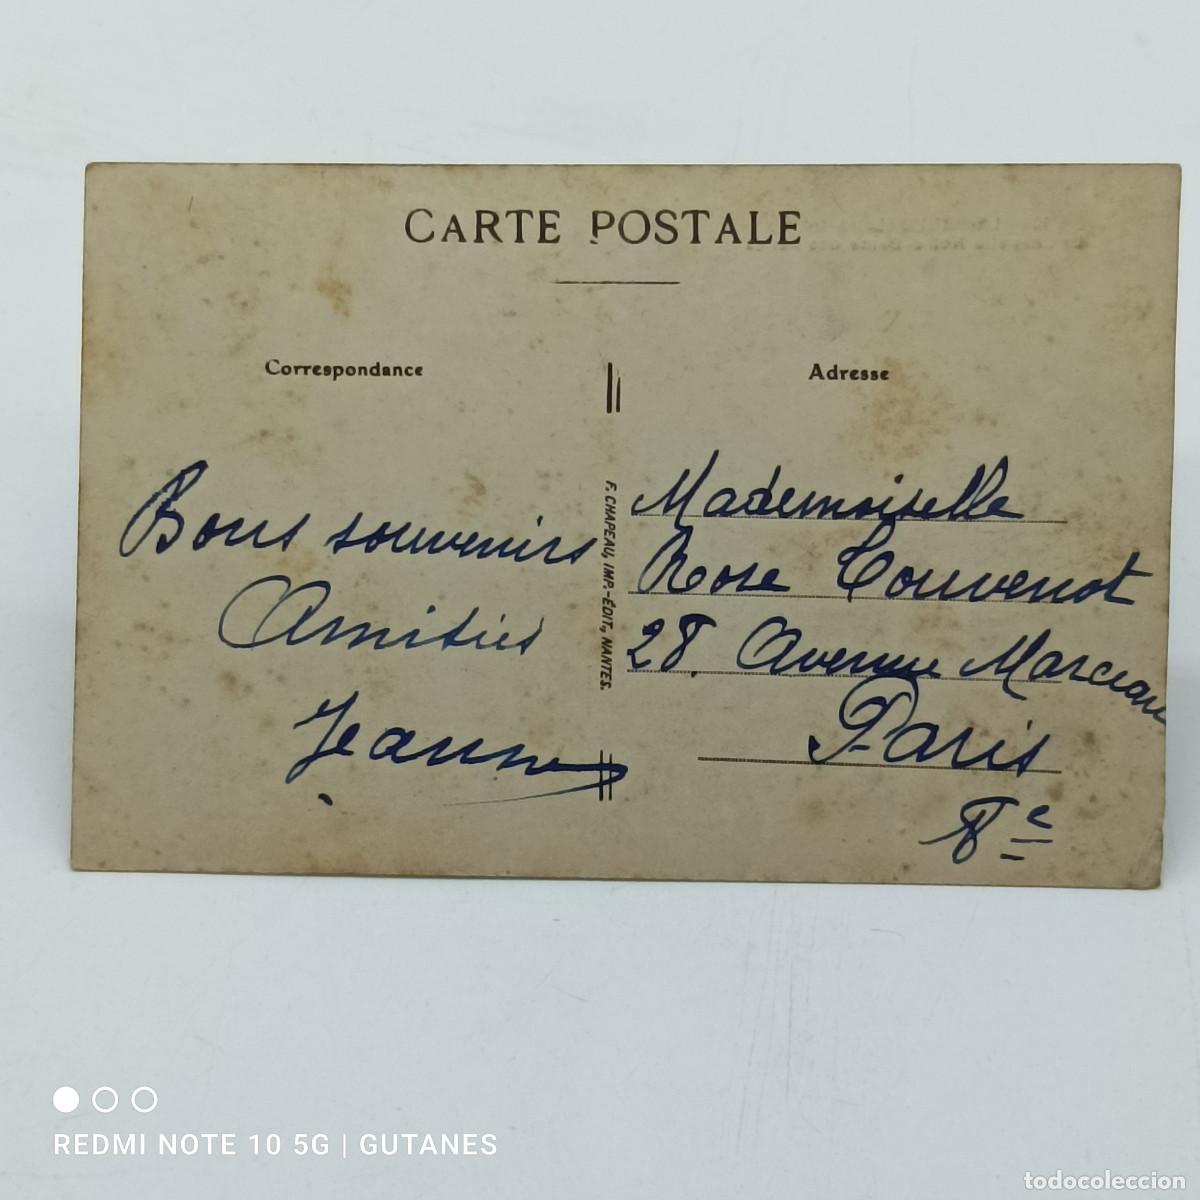 CARTE POSTALE
Correspondance
Bons souvenirs
Amitiés
Jeanne
F. CHAPEAU, IMP.-ÉDIT., NANTES.
Adresse
Mademoiselle
Rose Touvenot
28 Avenue Marceau
Paris
8e
REDMI NOTE 10 5G | GUTANES
todocoleccion